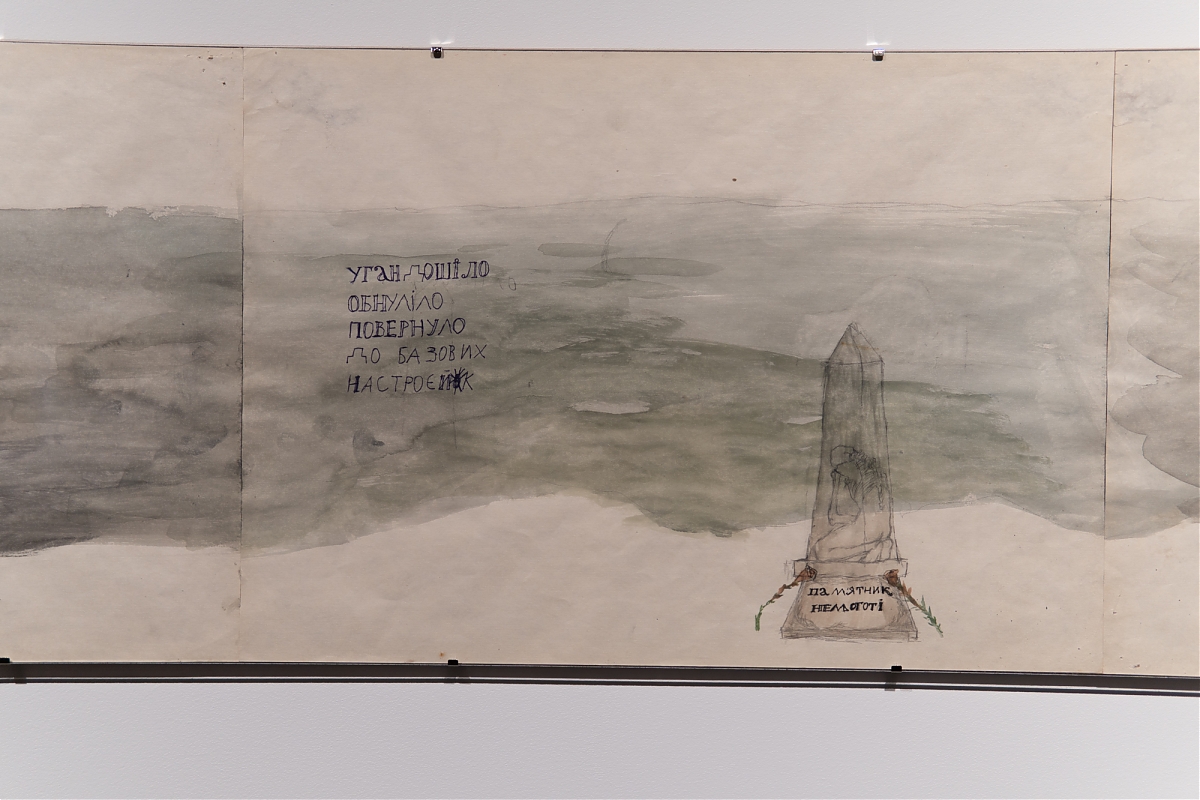 УГАНДОШІЛО
ОБНУЛІЛО
ПОВЕРНУЛО
ДО БАЗОВИХ
НАСТРОЄК
ПАМЯТНИК
НЕМОГОТІ